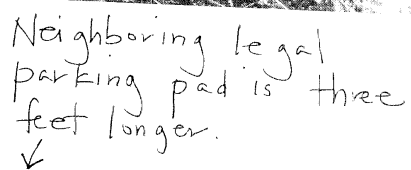 Neighboring legal
parking pad is three
feet longer.